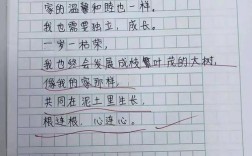 家的温馨和睦也一样。
我也需要独立，成长。
一岁一枯荣，
我也终会发展成枝繁叶茂的大树，
像我的家那样。
共同在泥土里生长，
根连根，心连心。